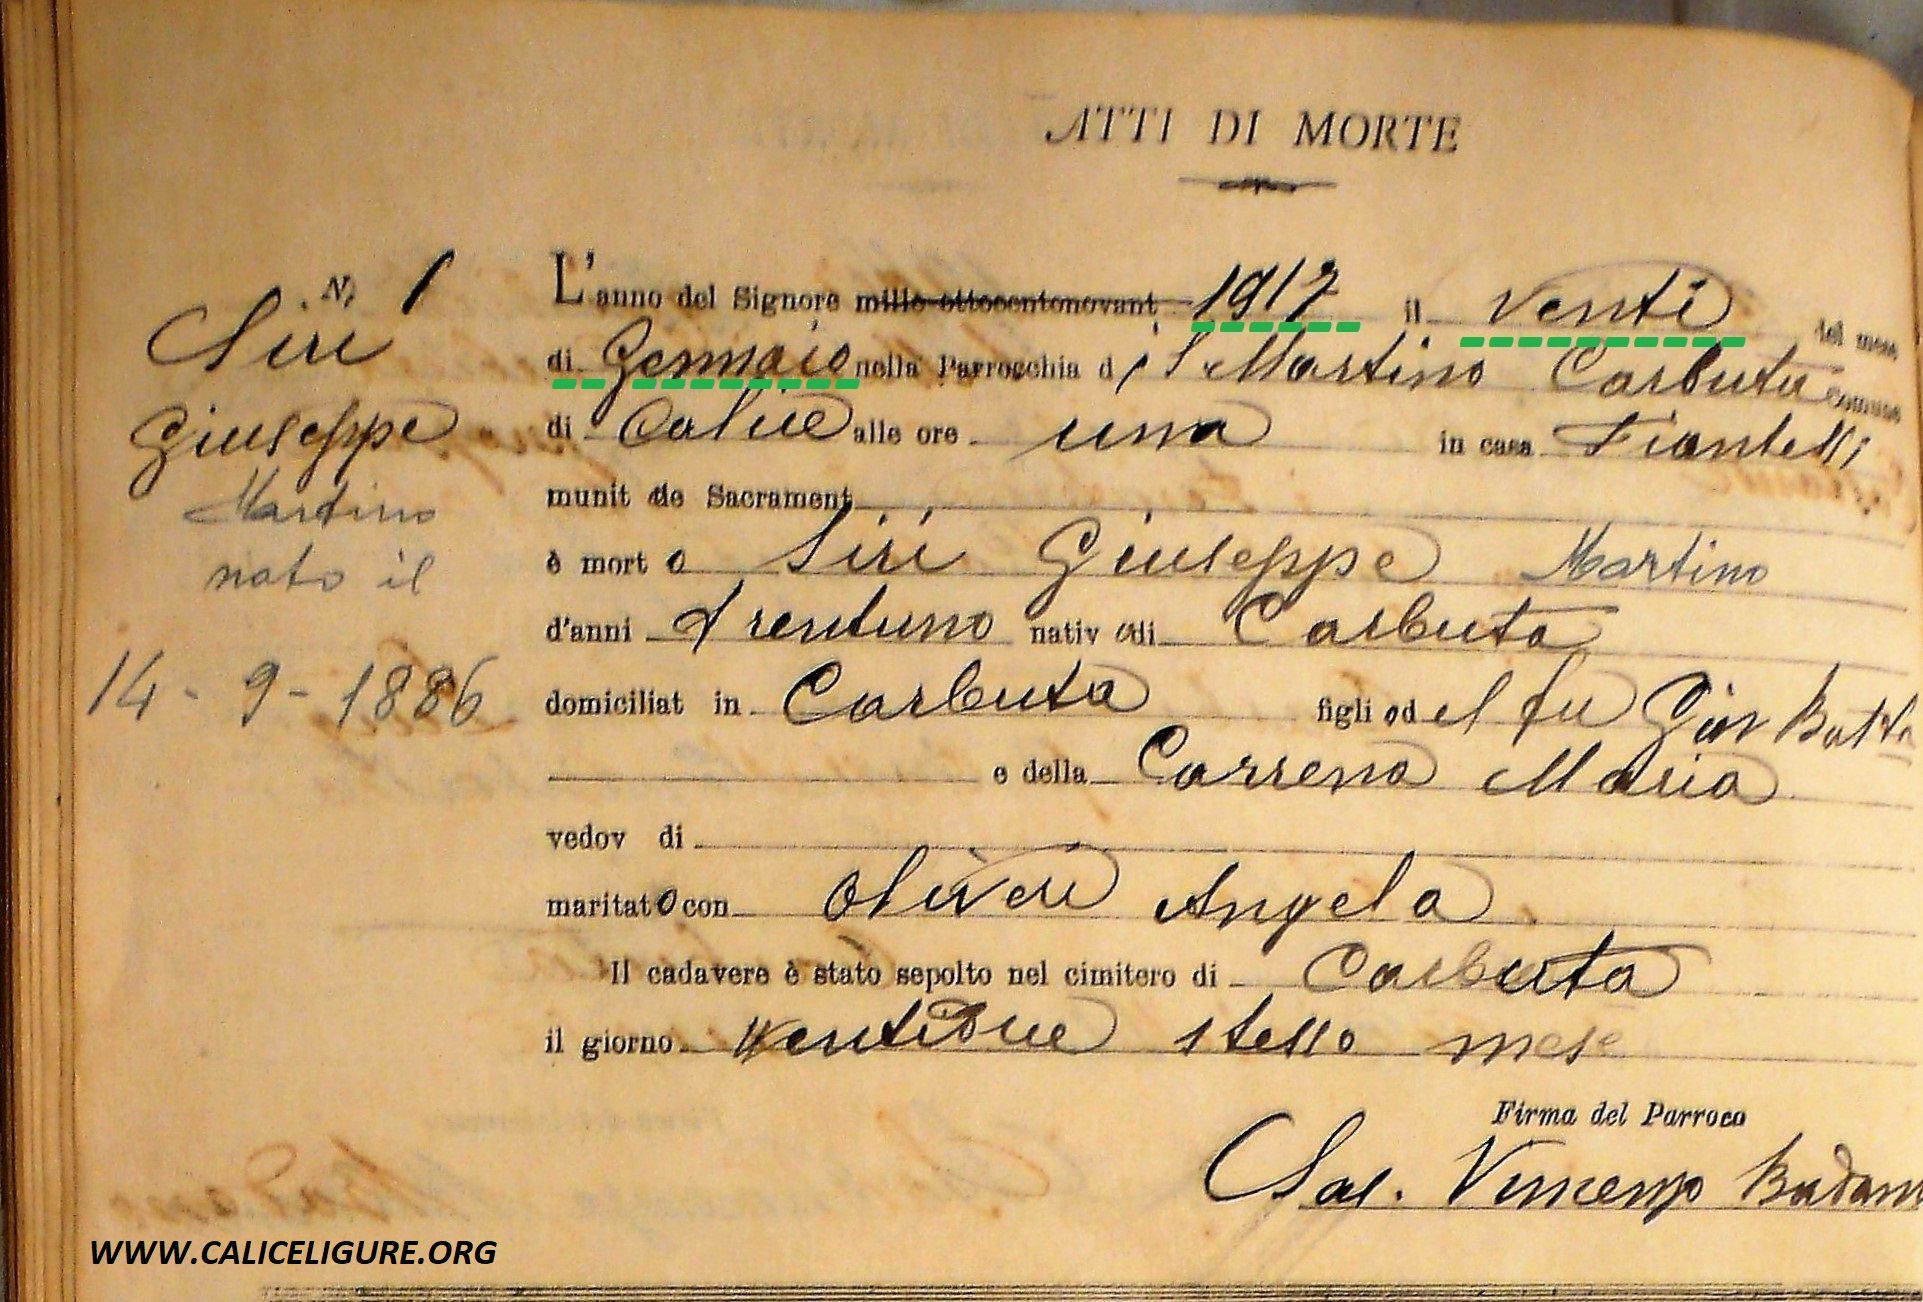 ATTI DI MORTE
N. 1
Siri
Giuseppe
Martino
nato il
14 - 9 - 1886
L'anno del Signore mille ottocentonovant 1917 il venti del mese
di Gennaio nella Parrocchia di S Martino Carbuta Comune
di Calice alle ore una in casa
munit de Sacrament
è morto Siri Giuseppe Martino
d'anni trentuno nativo di Carbuta
domiciliat in Carbuta figlio del fu Gion Batta
e della Carrena Maria
vedov di
maritato con Oliveri Angela
Il cadavere è stato sepolto nel cimitero di Carbuta
il giorno ventidue stesso mese
Firma del Parroco
Sac. Vincenzo
WWW.CALICELIGURE.ORG